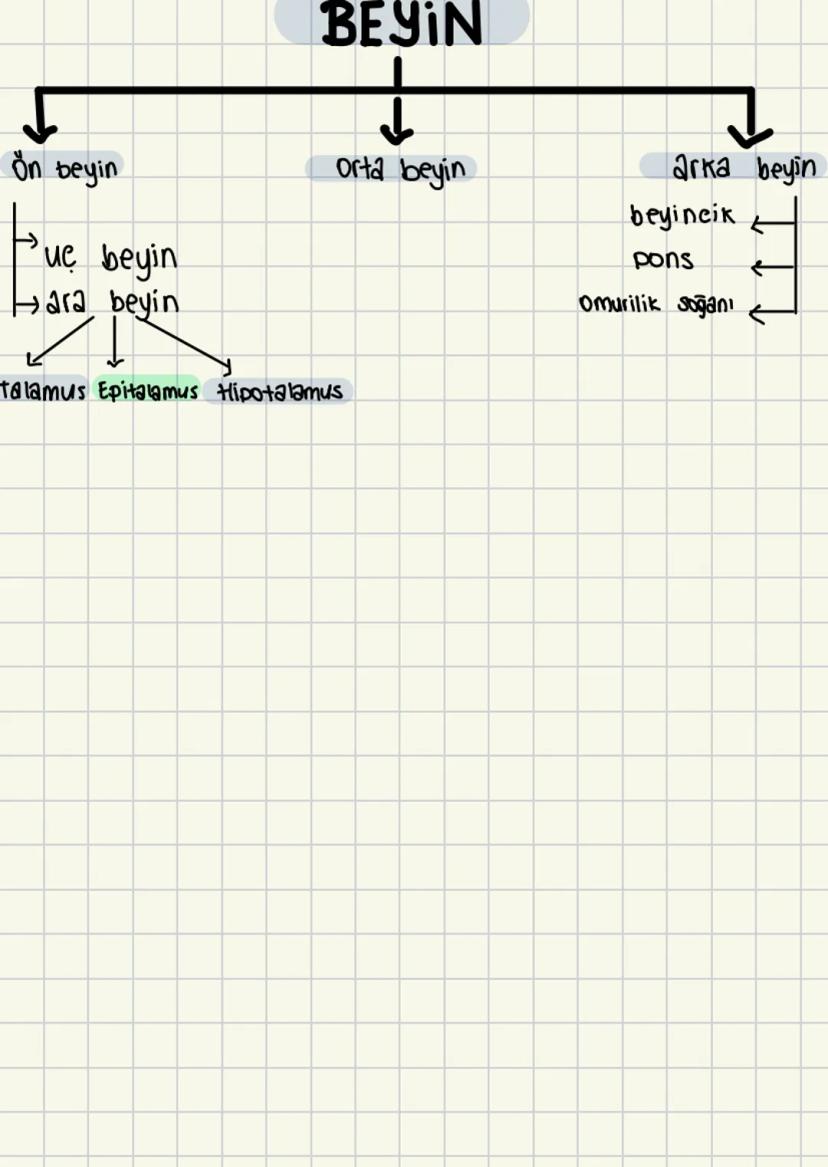 BEYiN
Ön beyin
orta beyin
arka beyin
uç beyin
ara beyin
talamus Epitalamus Hipotalamus
beyincik
pons
omurilik soğanı